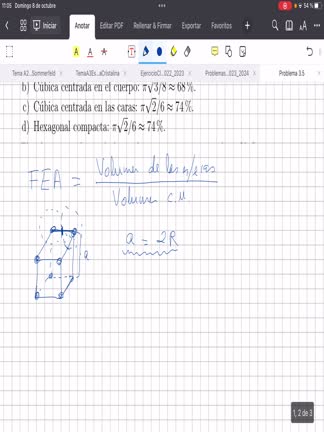 11:05 Domingo 8 de octubre
54 %
Iniciar Anotar Editar PDF Rellenar & Firmar Exportar Favoritos
Tema A2...Sommerfeld TemaA3Es...aCristalina EjercicioCI...022_2023 Problemas...023_2024 Problema 3.5
b) Cúbica centrada en el cuerpo: π√3/8 ≈ 68%.
c) Cúbica centrada en las caras: π√2/6 ≈ 74%.
d) Hexagonal compacta: π√2/6 ≈ 74%.
FEA = Volumen de las
Volumen c.u
a = 2R
a
1, 2 de 3